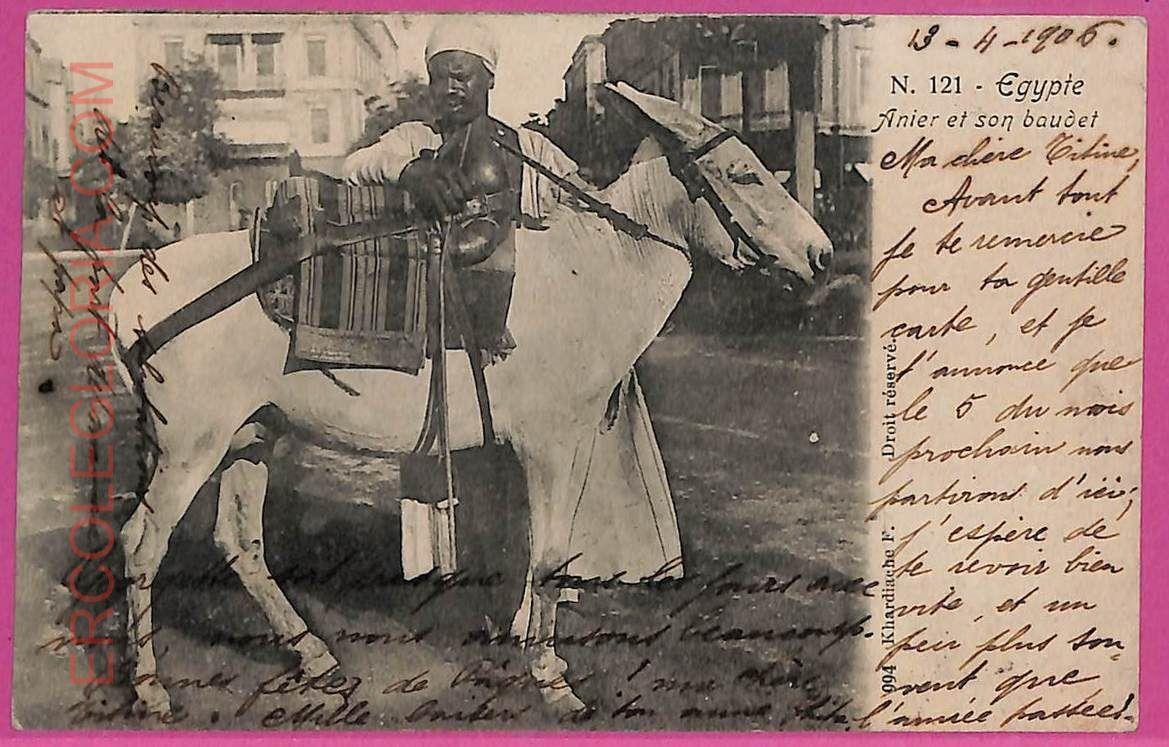 13-4-1906.
N. 121 - Egypte
Anier et son baudet
Ma chère Titine,
Avant tout
je te remercie
pour ta gentille
carte, et je
t'annonce que
le 5 du mois
prochain nous
partirons d'ici;
j'espère de
te revoir bien
vite, et un
peu plus sou-
vent que
l'année passée!
sort presque tous les jours avec
nous, nous nous amusons beaucoup.
Bonnes fêtes de Pâques! ma chère
Titine. Mille baisers de ton amie
994 Khardiache F. Droit réservé.
des salutations
ERCOLEGLORIA.COM